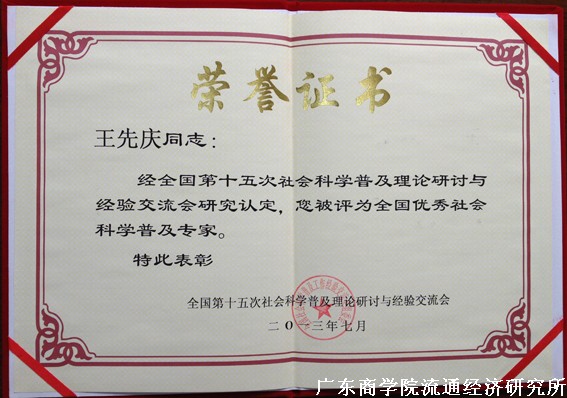 荣誉证书
王先庆同志：
经全国第十五次社会科学普及理论研讨与
经验交流会研究认定，您被评为全国优秀社会
科学普及专家。
特此表彰
全国第十五次社会科学普及理论研讨与经验交流会
二〇一三年七月
广东商学院流通经济研究所